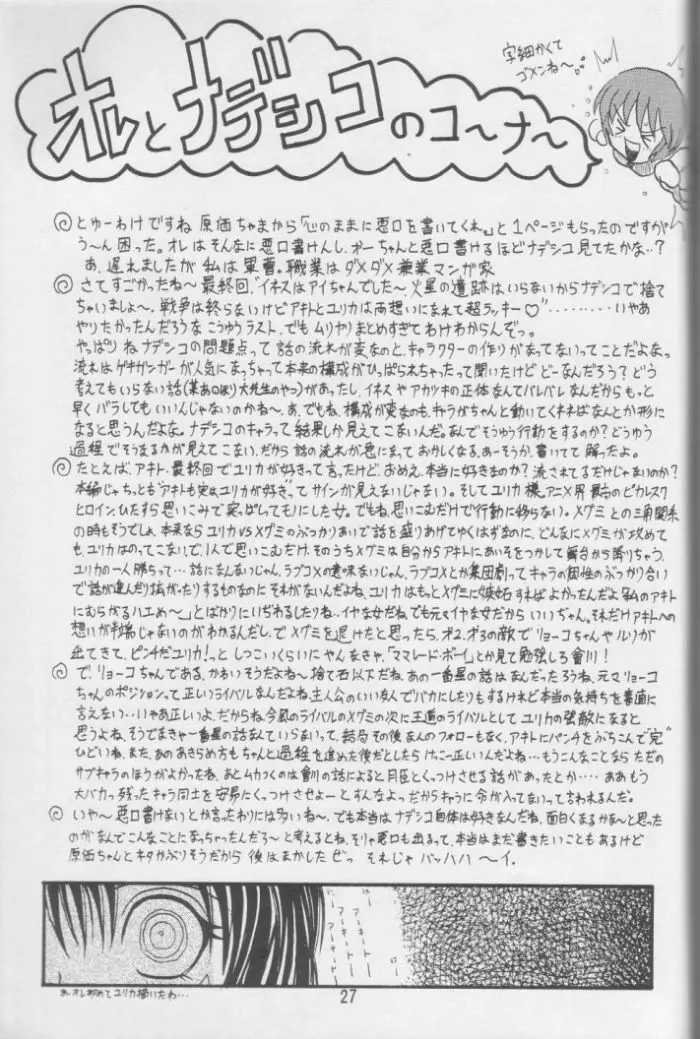 オレとナデシコのコ〜ナ〜
字細かくて
ゴメンね〜。。
とゅーわけですね 原価ちゃまから「心のままに悪口を書いてくれ。」と1ページもらったのですが
う〜ん困った。オレはそんなに悪口書けんし、オーちゃんと悪口書けるほどナデシコ見てたかな‥?
あ、遅れましたが 私は軍曹。職業はダメダメ兼業マンガ家
さてすごかったね〜最終回、"イネスはアイちゃんでした〜火星の遺跡はいらないからナデシコで捨て
ちゃいましょ〜。戦争は終らないけどアキトとユリカは両想いになれて超ラッキー♡"………いやあ
やりたかったんだろうな こうゆうラスト、でもムリヤリまとめすぎてわけわからんぞっ。
やっぱりねナデシコの問題点って話の流れが変なのと、キャラクターの作りがなってないってことだよなっ。
流れはゲキガンガーが人気になっちゃって本来の構成がひっぱられちゃったって聞いたけどどーなんだろう?どう
考えてもいらない話(某あ○ほり大先生のやつ)があったし、イネスやアカツキの正体なんてバレバレなんだからもっと
早くバラしてもいいんじゃないのかね〜。あ、でもね、構成が変なのも、キャラがちゃんと動いてくれればなんとか形に
なると思うんだよな。ナデシコのキャラって結果しか見えてこないんだ。なんでそうゆう行動をするのか?どうゆう
過程でそうなるかが見えてこない。だから話の流れが急になっておかしくなる、あーそうか、書いてて解ったよ。
たとえば、アキト、最終回でユリカが好きって言ったけど、おめえ、本当に好きなのか?流されてるだけじゃないのか?
本編じゃちっとも"アキトも実はユリカが好き"ってサインが見えないじゃない。そしてユリカ様、アニメ界最高のピカレスク
ヒロイン、ひたすら思いこみで突っぱしてモノにした女。でもね、思いこむだけで行動に移らない。メグミとの三角関係
の時もそうでしょ、本来なら ユリカVSメグミのぶっかりあいで話を盛りあげてゆくはずなのに、どんなにメグミが攻めて
も、ユリカはのってこないで、1人で思いこむだけ、そのうちメグミは自分からアキトにあいそをつかして舞台から降りちゃう。
ユリカの一人勝ちって…話になんないじゃん、ラブコメの意味ないじゃん。ラブコメとか集団劇ってキャラの個性のぶっかり合い
で話が進んだり拡がったりするものなのに それがないんだよね。ユリカはもっとメグミに嫉妬すればよかったんだよ「私のアキト
にむらがるハエめ〜」とばかりにいぢわるしたりね‥イヤな女だね、でも元々イヤな女だからいいぢゃん。それだけアキトへの
想いが半端じゃないのがわかるんだし。でメグミを退けたと思ったら、オ2、オ3の敵でリョーコちゃんやルリが
出てきて、ピンチだユリカ!っとしつこいくらいにやんなきゃ、「ママレード・ボーイ」とか見て勉強しろ會川!
で、リョーコちゃんである、かわいそうだよね〜捨て石以下だね、あの一番星の話はなんだったろうね、元々リョーコ
ちゃんのポジションって正しいライバルなんだよね、主人公のいい友人でバカにしたりもするけれど本当の気持ちを素直に
言えない…いやあ正しいよ、だからね、今風のライバルのメグミの次に王道のライバルとして ユリカの強敵になると
思うよね、そうでまきゃ一番星の話なんていらないって、結局その後なんのフォローもなく、アキトにパンチをぶちこんで"完"
ひどいね、また、あのあきらめ方もちゃんと過程を進めた後だとしたら けっこー正しいんだよね…もうこんなことなら ただの
サブキャラのほうがよかったね、あとムカつくのは會川の話によると月臣とくっつけさせる話があったとか…‥ああもう
大バカっ残ったキャラ同士を安易にくっつけさせよーとすんなよっだからキャラに命が入ってないって言われるんだ。
いや〜悪口書けないとか言ったわりには多いね〜、でも本当はナデシコ自体は好きなんだね、面白くなるかな〜と思った
のがなんでこんなことになっちゃったんだろ〜と考えるとね、そりゃ悪口も出るって、本当はまだ書きたいこともあるけど
原価ちゃんとネタかぶりそうだから 後はまかしたぜっ それじゃ バッハハ〜イ。
アーキートー
アーキートー
あ、オレ初めてユリカ描いたわ…
27